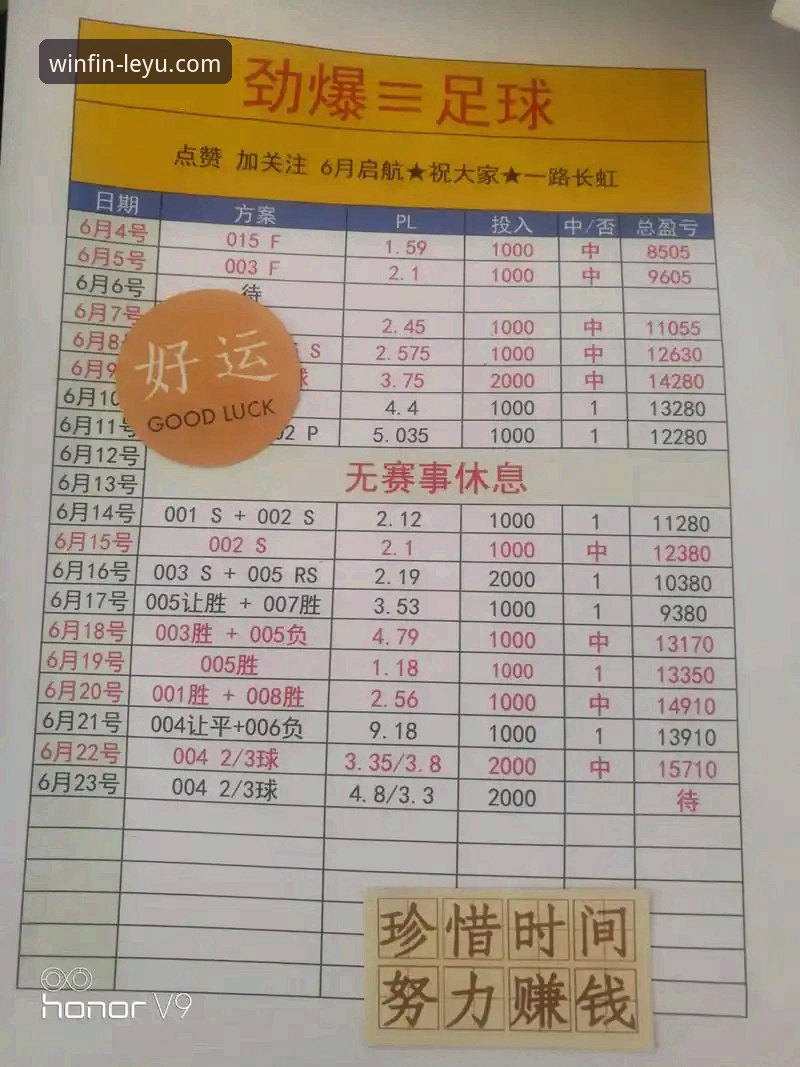 winfin-leyu.com
劲爆三足球
点赞 加关注 6月启航★祝大家★一路长虹
日期 方案 PL 投入 中/否 总盈亏
6月4号 015 F 1.59 1000 中 8505
6月5号 003 F 2.1 1000 中 9605
6月6号 待
6月7号 2.45 1000 中 11055
6月8 S 2.575 1000 中 12630
6月9 球 3.75 2000 中 14280
6月10 4.4 1000 1 13280
6月11号 02 P 5.035 1000 1 12280
6月12号
无赛事休息
6月13号
6月14号 001 S + 002 S 2.12 1000 1 11280
6月15号 002 S 2.1 1000 中 12380
6月16号 003 S + 005 RS 2.19 2000 1 10380
6月17号 005让胜 + 007胜 3.53 1000 1 9380
6月18号 003胜 + 005负 4.79 1000 中 13170
6月19号 005胜 1.18 1000 1 13350
6月20号 001胜 + 008胜 2.56 1000 中 14910
6月21号 004让平+006负 9.18 1000 1 13910
6月22号 004 2/3球 3.35/3.8 2000 中 15710
6月23号 004 2/3球 4.8/3.3 2000 待
好运
GOOD LUCK
珍惜时间
努力赚钱
honor V9